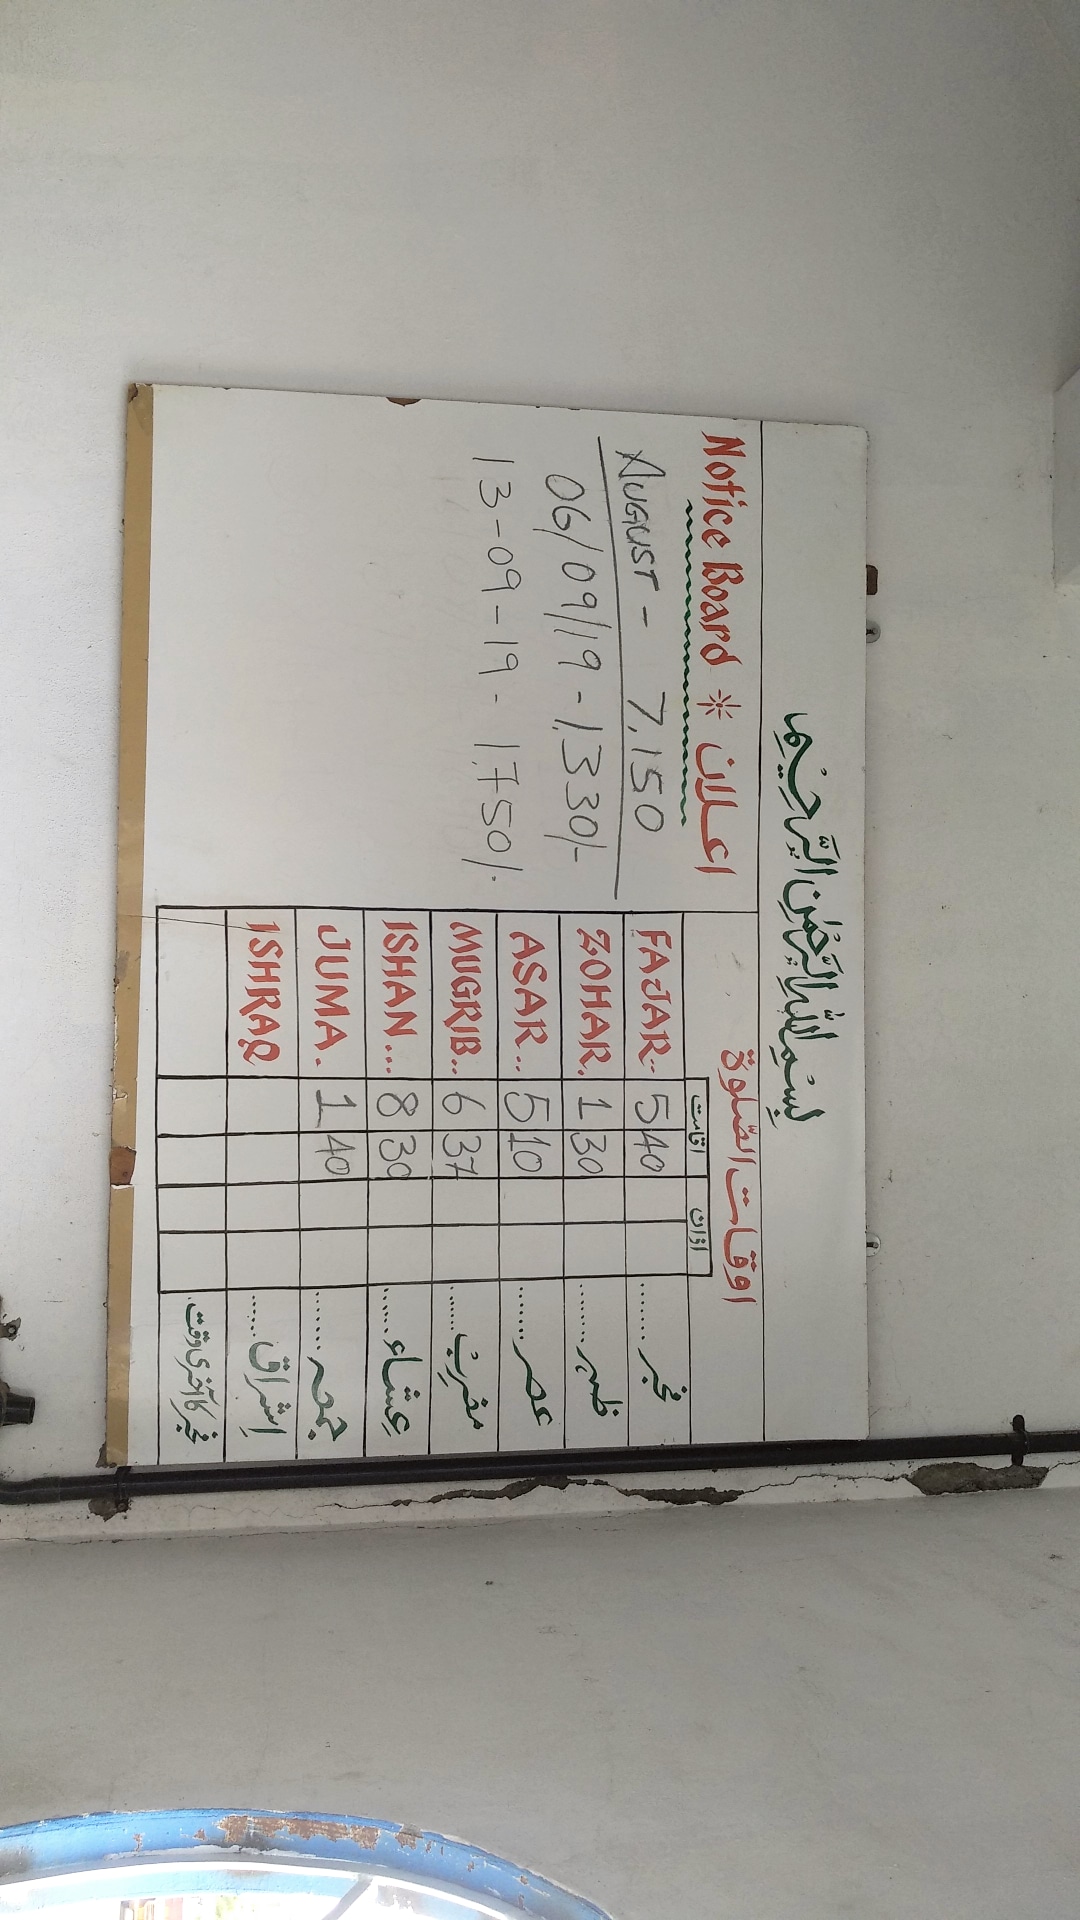 بِسْمِ اللّٰهِ الرَّحْمٰنِ الرَّحِيْمِ
Notice Board * اعلان
AUGUST - 7,150
06/09/19 - 1,330/-
13-09-19 - 1,750/.
اوقات الصّلوة
اقامت اذان
FAJAR.. 5 40 ........ فجر
ZOHAR. 1 30 ........ ظہر
ASAR.. 5 10 ....... عصر
MUGRIB.. 6 37 ...... مغرب
ISHAN... 8 30 ...... عِشاء
JUMA. 1 40 ....... جمعہ
ISHRAQ ..... اِشراق
فجر کا آخری وقت.